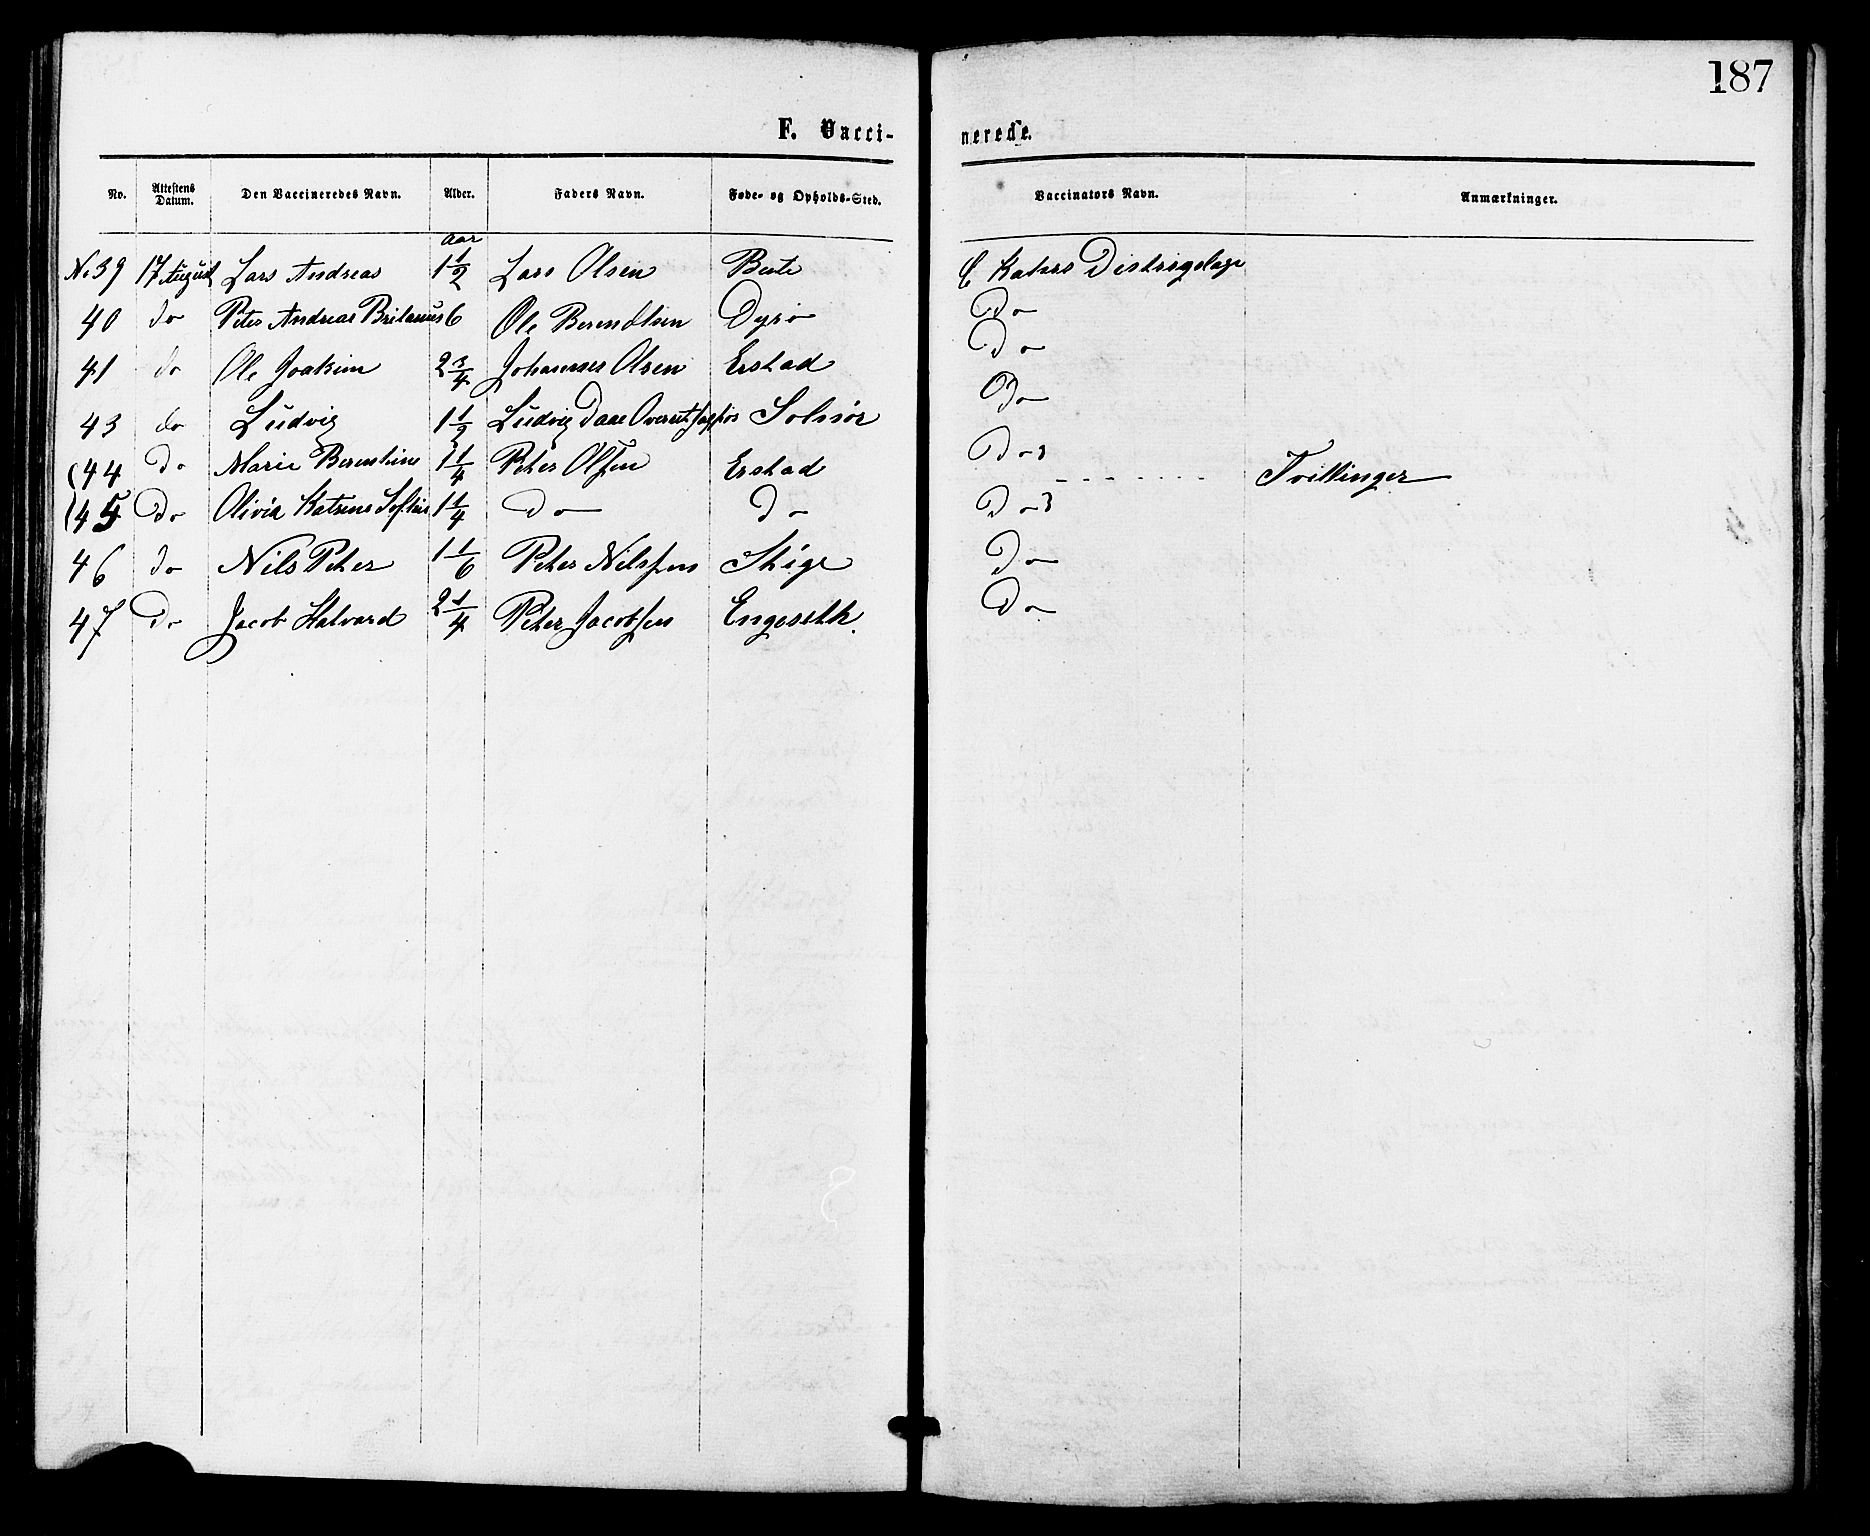 187
F. Vacci-
nerede.
No. Attestens Datum. Den Vaccineredes Navn. Alder. Faders Navn. Føde- og Opholds-Sted. Vaccinators Navn. Anmærkninger.
Aar
No 39 17 August Lars Andreas 1 1/2 Lars Olsen C
40 do Peter Andreas 6 Ole Berendtsen Dyrø Do
41 do Ole Joakim 2 3/4 Johannes Olsen Erstad Do
43 do Ludvig 1 1/2 Ludvig Daae Solnør Do
(44 Do Marie Berentine 1 1/4 Peter Olssen Erstad Do Tvillinger
(45 Do Olivia Katrine 1 1/4 Do Do Do
46 do Nils Peter 1 1/6 Peter Nilssen Do
47 Do Jacob Halvard 2 1/4 Peter Jacobsen Engeseth. Do